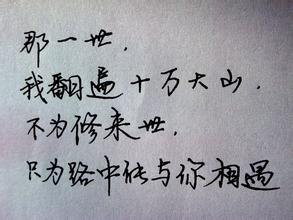 那一世，
我翻遍十万大山，
不为修来世，
只为路中能与你相遇